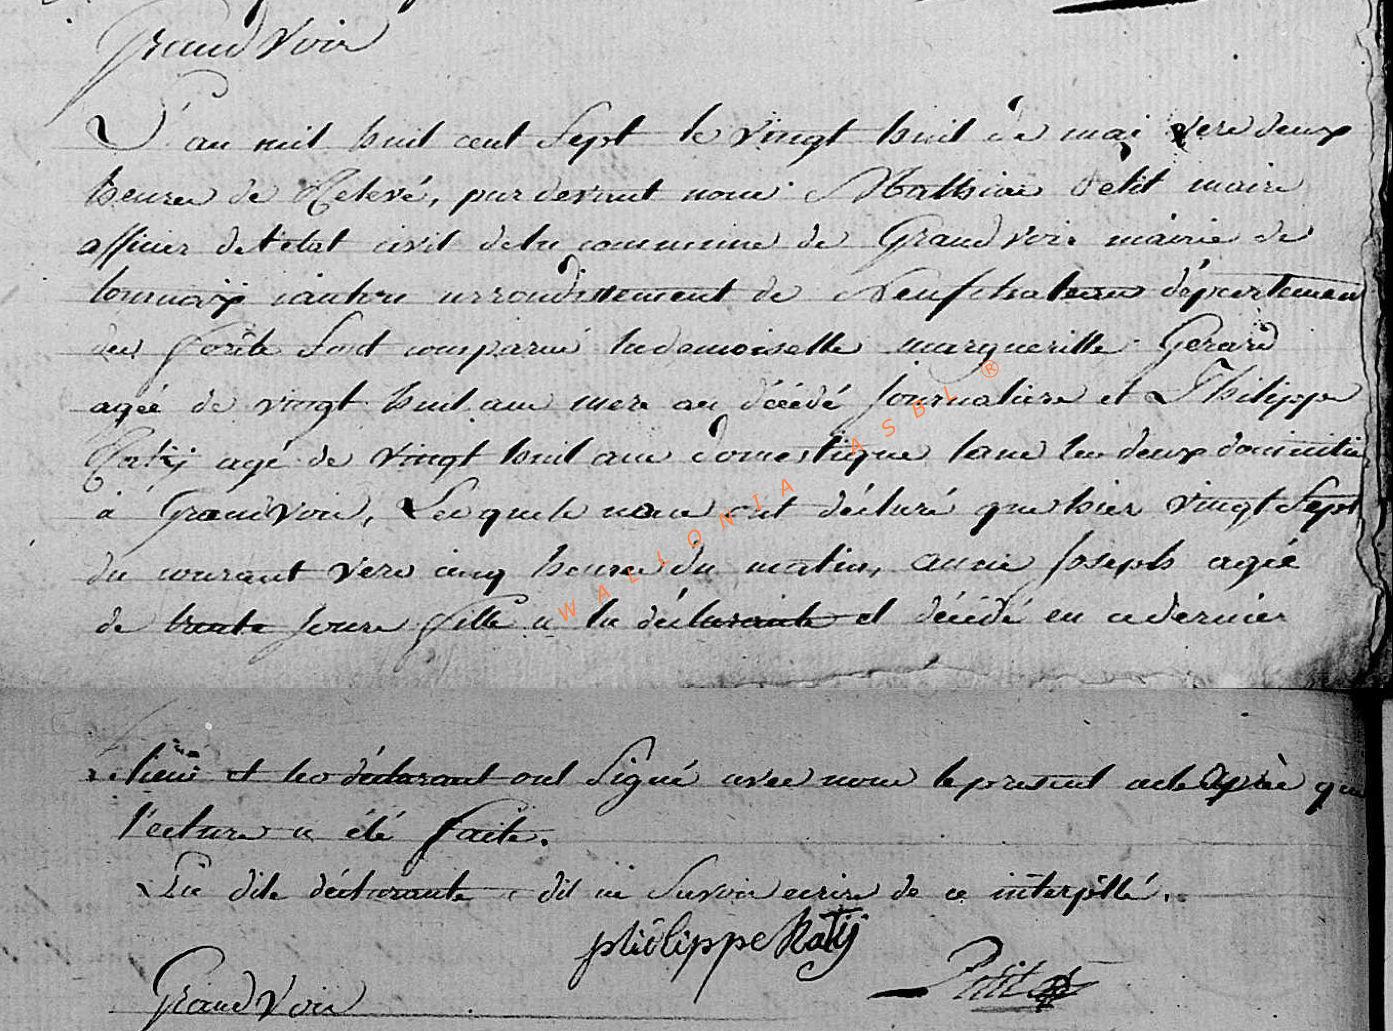 Grandvoir
L'an mil huit cent Sept le vingt huit de mai vers deux
heures de Relevé, pardevant nous Mathieu Petit maire
officier de l'etat civil de la commune de Grandvoir mairie de
tournay canton arrondissement de Neufchateau département
des forêts Sont comparus la demoiselle margueritte Gerard
agée de vingt huit ans mere au décédé Journaliere et Philippe
Ratij agé de vingt huit ans domestique tous les deux domicilié
à Grandvoir, Lesquels nous ont déclaré que hier vingt Sept
du courant vers cinq heures du matin, anne Joseph agée
de trente Jours fille a la déclarante et décédé en ce dernier
lieux et les déclarant ont Signé avec nous le present acte après que
l'ecture a été faite.
La dite déclarante a dit ne Savoir ecrire de ce interpillé.
philippe Ratij
Petit
Grandvoir
WALLONIA ASBL ®